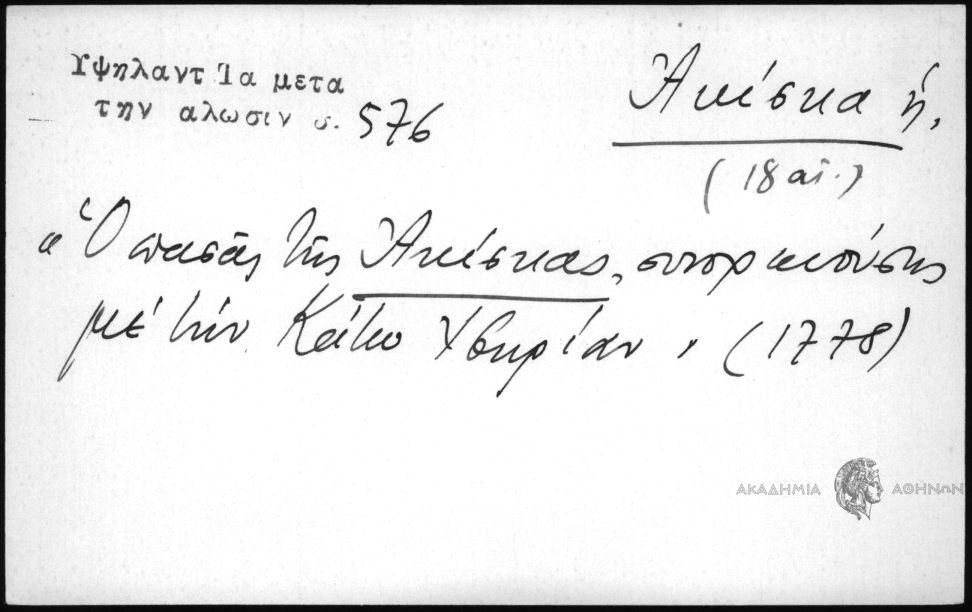 Υψηλαντ Τα μετα
την αλωσιν σ. 576
Ἀκίσκα ἡ,
(18 αἰ.)
« Ὁ πασᾶς τῆς Ἀκίσκας, συνορευούσης
μὲ τὴν Κάτω Ἰβηρίαν, (1778)
ΑΚΑΔΗΜΙΑ ΑΘΗΝΩΝ